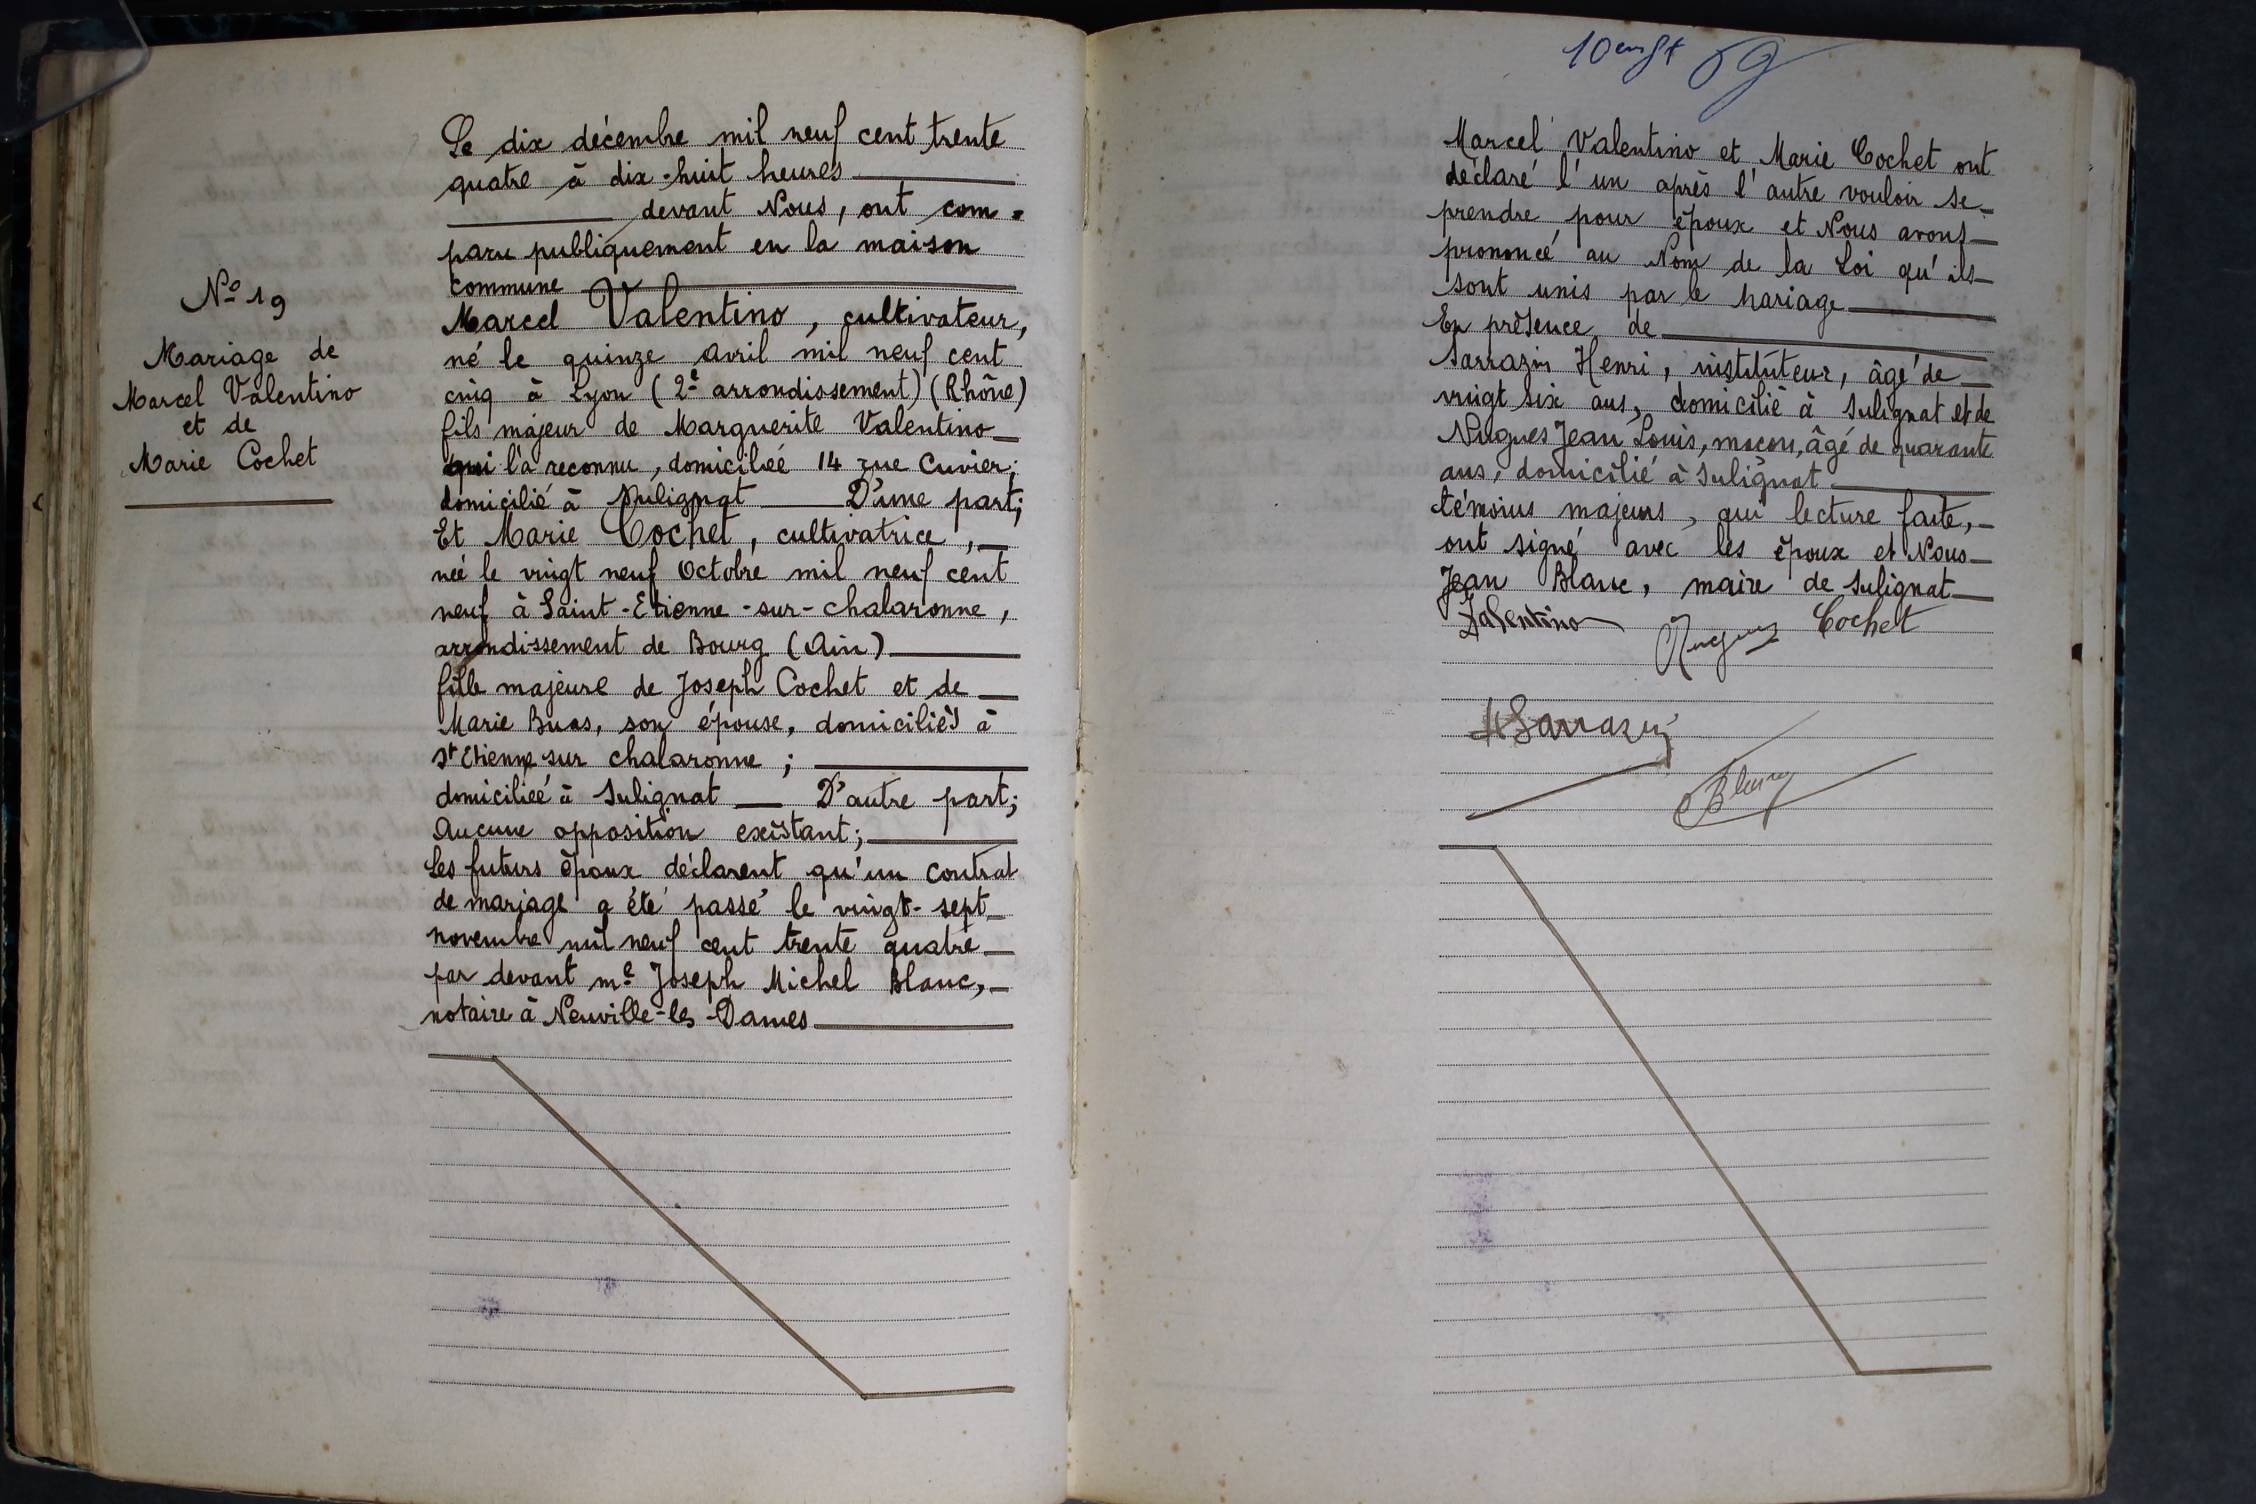 No 19
Mariage de
Marcel Valentino
et de
Marie Cochet
Le dix décembre mil neuf cent trente
quatre à dix-huit heures
devant Nous, ont com-
paru publiquement en la maison
commune
Marcel Valentino, cultivateur,
né le quinze avril mil neuf cent
cinq à Lyon (2e arrondissement) (Rhône)
fils majeur de Marguerite Valentino
qui l'a reconnu, domiciliée 14 rue Cuvier;
domicilié à Sulignat D'une part;
Et Marie Cochet, cultivatrice,
née le vingt neuf Octobre mil neuf cent
neuf à Saint-Etienne-sur-chalaronne,
arrondissement de Bourg (Ain)
fille majeure de Joseph Cochet et de
Marie Buas, son épouse, domiciliés à
St Etienne sur chalaronne;
domiciliée à Sulignat D'autre part;
Aucune opposition existant;
Les futurs époux déclarent qu'un contrat
de mariage a été passé le vingt-sept
novembre mil neuf cent trente quatre
par devant me Joseph Michel Blanc,
notaire à Neuville-les-Dames
69
Marcel Valentino et Marie Cochet ont
déclaré l'un après l'autre vouloir se
prendre pour époux et Nous avons
prononcé au Nom de la Loi qu'ils
sont unis par le Mariage
En présence de
Sarrazin Henri, instituteur, âgé de
vingt six ans, domicilié à Sulignat et de
Nugues Jean Louis, maçon, âgé de quarante
ans, domicilié à Sulignat
témoins majeurs, qui lecture faite,
ont signé avec les époux et Nous
Jean Blanc, maire de Sulignat
Valentino Nugues Cochet
H Sarrazin
Blanc